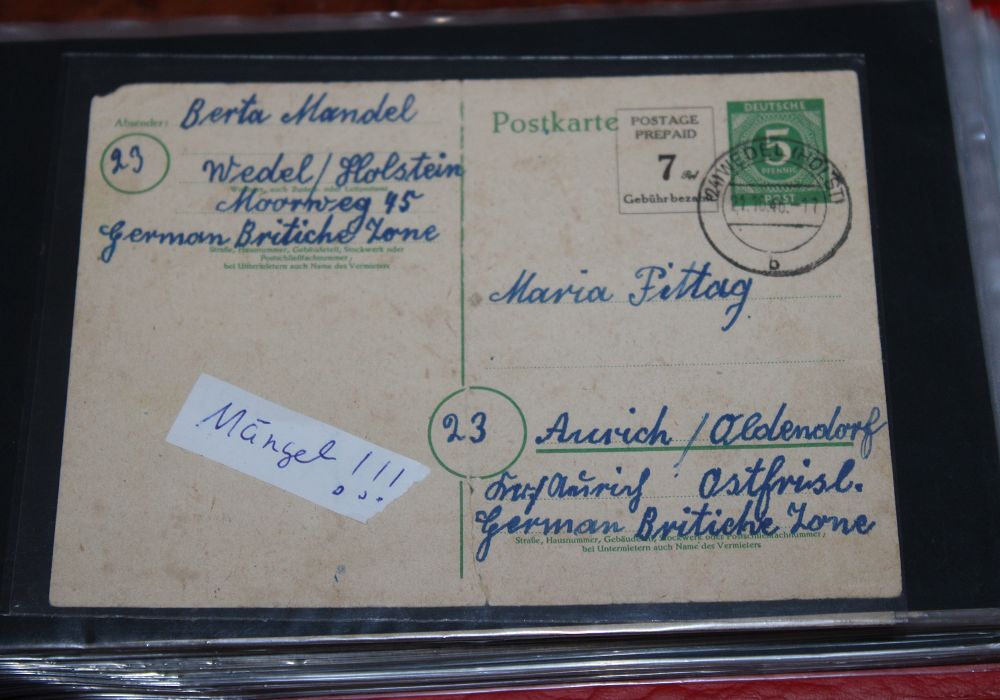 Absender: Berta Mandel
23
Wedel / Holstein
Moorweg 45
German Britiche Zone
Straße, Hausnummer, Gebäudeteil, Stockwerk oder
Postschließfachnummer;
bei Untermietern auch Name des Vermieters
Postkarte
POSTAGE
PREPAID
7
Gebühr bezah
DEUTSCHE
5
PFENNIG
POST
(24) WEDEL (HOLST)
b
Maria Pittag
23
Aurich / Oldendorf
Aurich Ostfrisl.
German Britiche Zone
Straße, Hausnummer, Gebäudeteil, Stockwerk oder Postschließfachnummer;
bei Untermietern auch Name des Vermieters
Mängel !!!